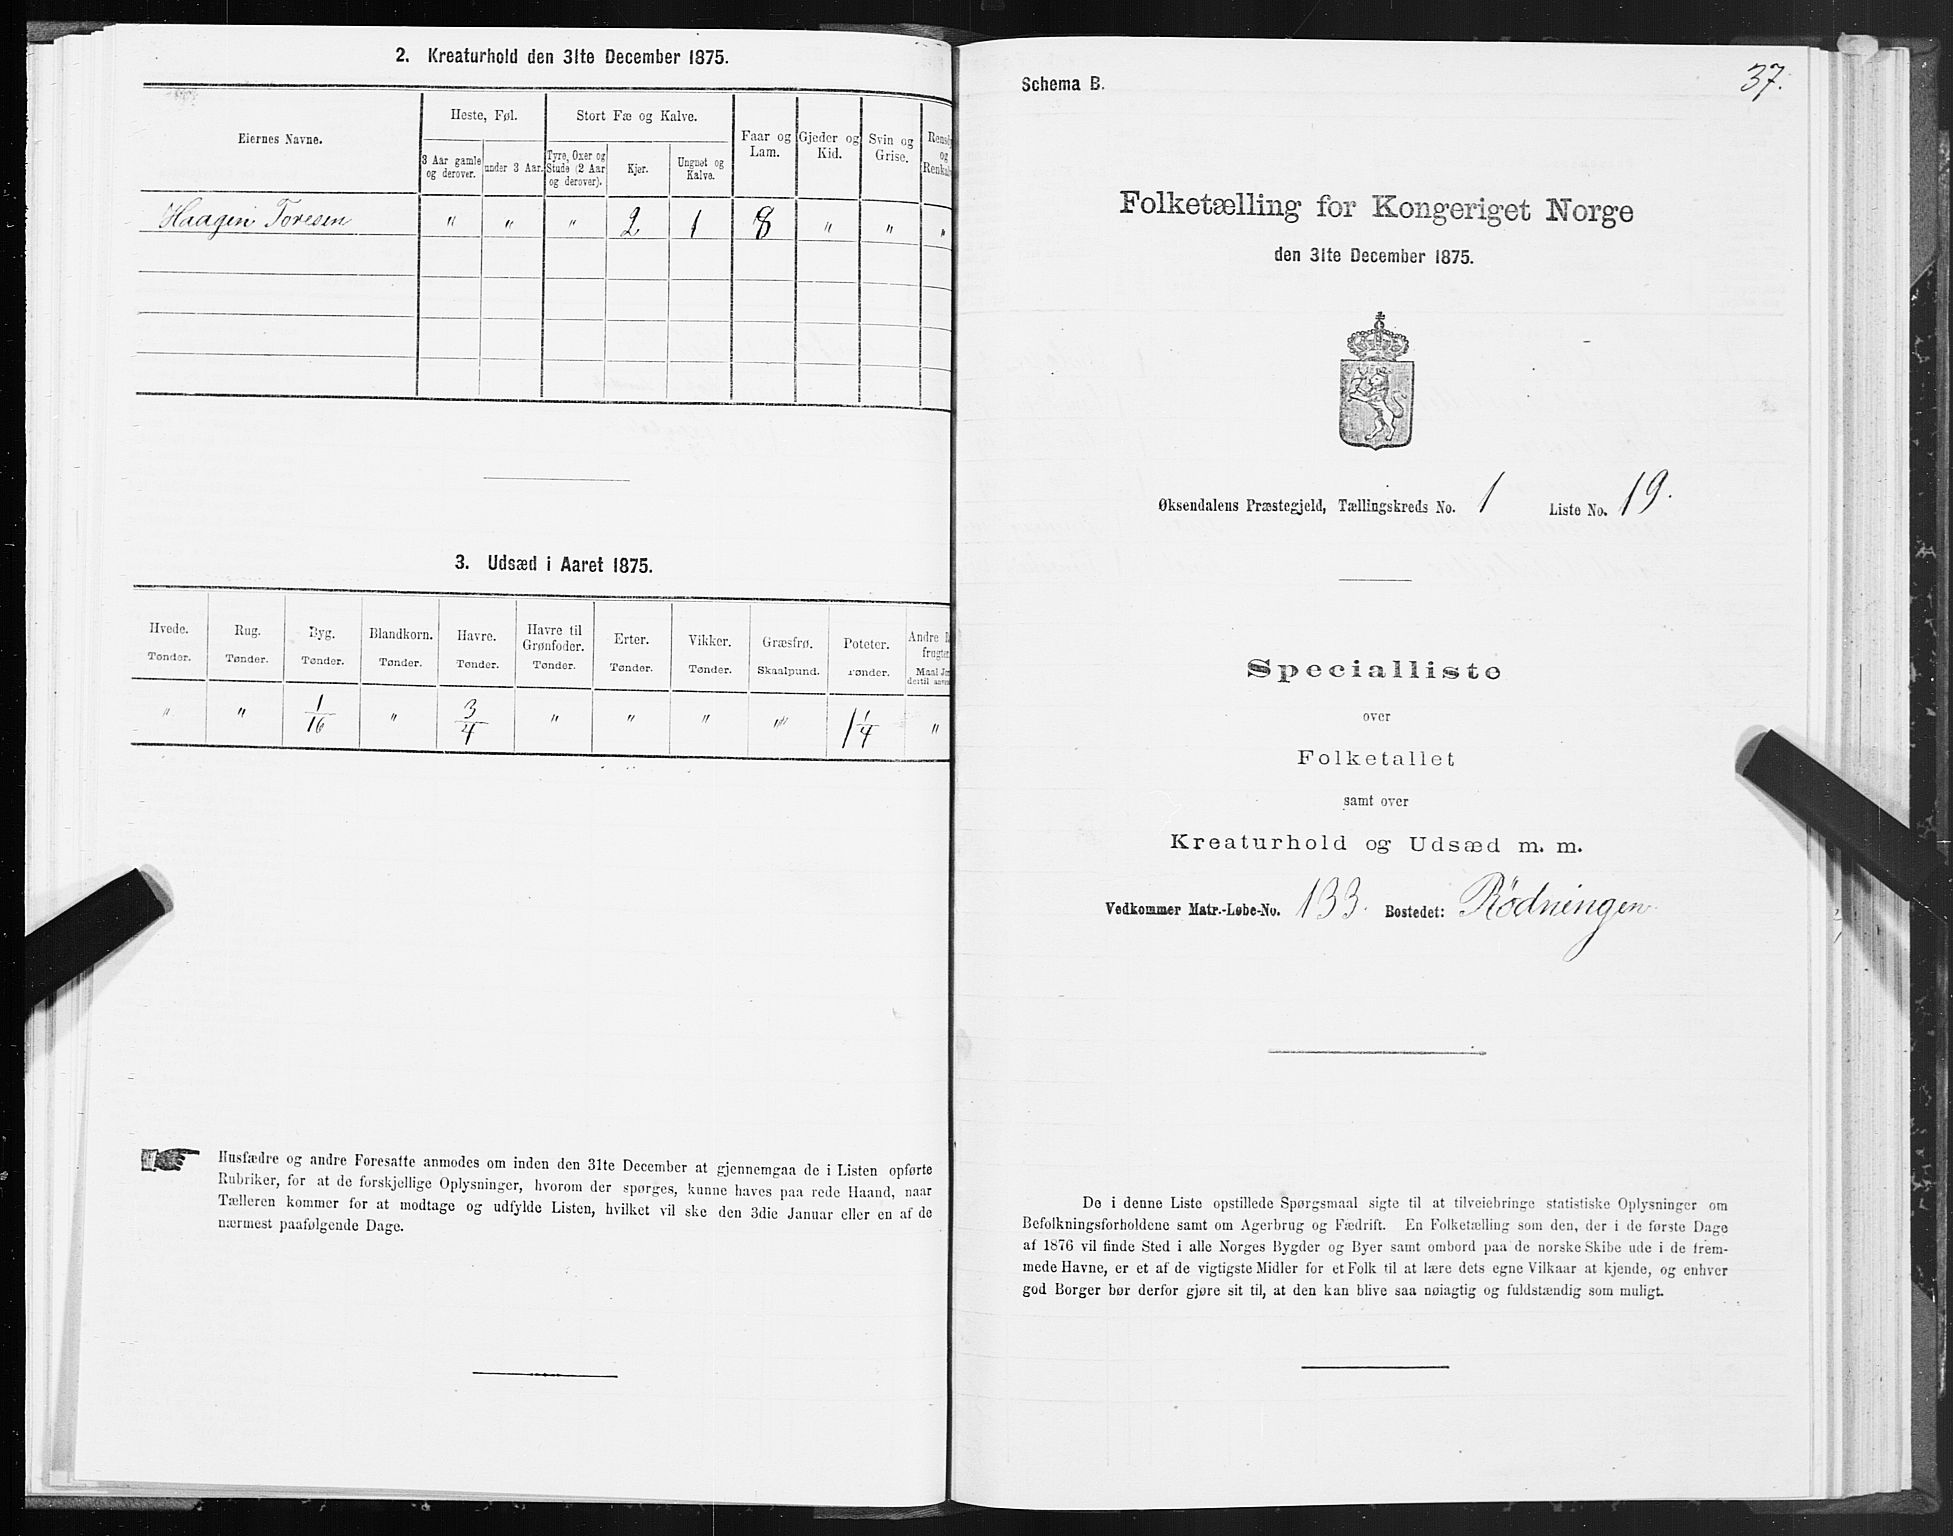 2. Kreaturhold den 31te December 1875.
Eiernes Navne.
Heste, Føl.
Stort Fæ og Kalve.
3 Aar gamle og derover.
under 3 Aar.
Tyre, Oxer og Stude (2 Aar og derover).
Kjør.
Ungnøt og Kalve.
Faar og Lam.
Gjeder og Kid.
Svin og Grise.
og
Haagen Toresen " " " 2 1 8 " " "
3. Udsæd i Aaret 1875.
Hvede. Rug. Byg. Blandkorn. Havre. Havre til Grønfoder. Erter. Vikker. Græsfrø. Poteter. Andre
Tønder. Tønder. Tønder. Tønder. Tønder. Tønder. Tønder. Tønder. Skaalpund. Tønder. Maal
" " 1/16 " 3/4 " " " " 1 1/4 "
Husfædre og andre Foresatte anmodes om inden den 31te December at gjennemgaa de i Listen opførte
Rubriker, for at de forskjellige Oplysninger, hvorom der spørges, kunne haves paa rede Haand, naar
Tælleren kommer for at modtage og udfylde Listen, hvilket vil ske den 3die Januar eller en af de
nærmest paafølgende Dage.
37.
Schema B.
Folketælling for Kongeriget Norge
den 31te December 1875.
Øksendalens Præstegjeld, Tællingskreds No. 1 Liste No. 19.
Specialliste
over
Folketallet
samt over
Kreaturhold og Udsæd m. m.
Vedkommer Matr.-Løbe-No. 133. Bostedet: Rödningen
De i denne Liste opstillede Spørgsmaal sigte til at tilveiebringe statistiske Oplysninger om
Befolkningsforholdene samt om Agerbrug og Fædrift. En Folketælling som den, der i de første Dage
af 1876 vil finde Sted i alle Norges Bygder og Byer samt ombord paa de norske Skibe ude i de frem-
mede Havne, er et af de vigtigste Midler for et Folk til at lære dets egne Vilkaar at kjende, og enhver
god Borger bør derfor gjøre sit til, at den kan blive saa nøiagtig og fuldstændig som muligt.